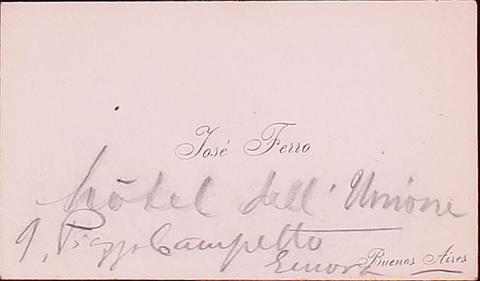 José Ferro
Hôtel dell'Unione
9, Piazza Campetto
Genova
Buenos Aires